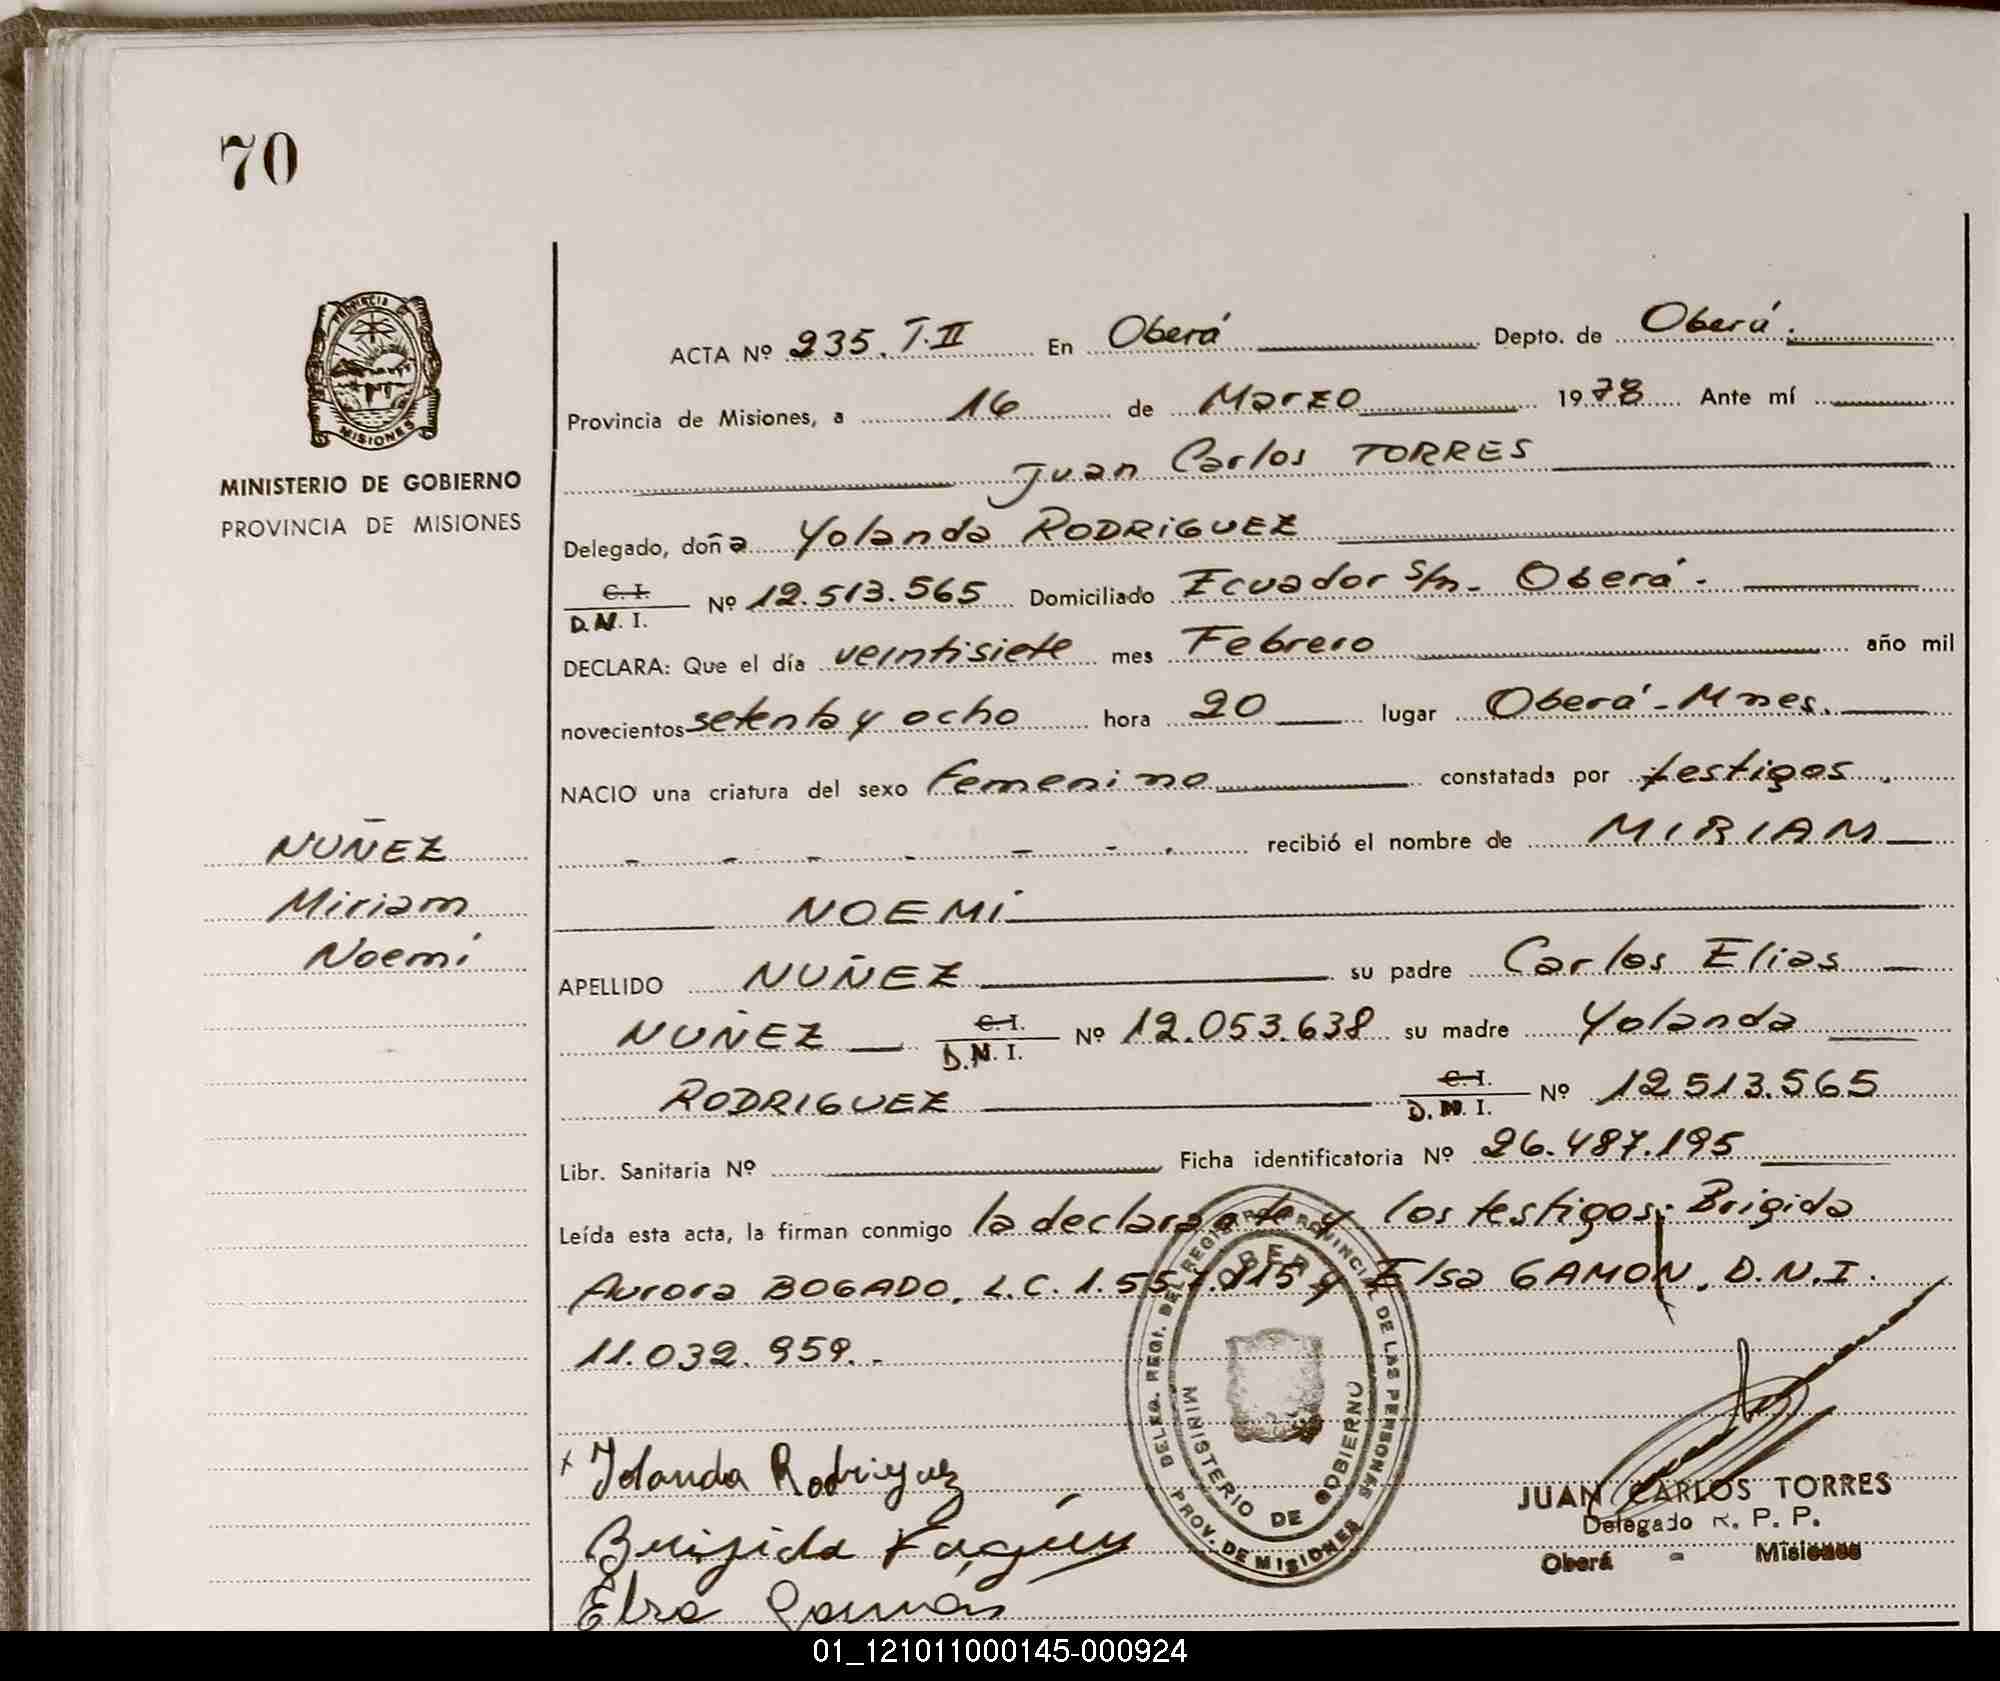 70
PROVINCIA DE
MISIONES
MINISTERIO DE GOBIERNO
PROVINCIA DE MISIONES
NUÑEZ
Miriam
Noemí
ACTA Nº 235. T.II En Oberá Depto. de Oberá.
Provincia de Misiones, a 16 de Marzo 1978 Ante mí
Juan Carlos TORRES
Delegado, doña Yolanda RODRIGUEZ
C. I.
D.N. I. Nº 12.513.565 Domiciliado Ecuador s/n. Oberá.
DECLARA: Que el día veintisiete mes Febrero año mil
novecientos setenta y ocho hora 20 lugar Oberá - Mnes.
NACIO una criatura del sexo femenino constatada por testigos.
recibió el nombre de MIRIAM
NOEMI
APELLIDO NUÑEZ su padre Carlos Elias
NUÑEZ C. I. D.N. I. Nº 12.053.638 su madre Yolanda
RODRIGUEZ C. I. D.N. I. Nº 12513.565
Libr. Sanitaria Nº Ficha identificatoria Nº 26.487.195
Leída esta acta, la firman conmigo la declarante y los testigos: Brigida
Aurora BOGADO, L.C. y Elsa GAMON, D.N.I.
11.032.959.-
DELEG. REGt. DEL REGISTRO PROVINCIAL DE LAS PERSONAS
OBERA
MINISTERIO DE GOBIERNO
PROV. DE MISIONES
x Yolanda Rodriguez
Brigida
Elsa Gamón
JUAN CARLOS TORRES
Delegado R. P. P.
Oberá - Misiones
01_121011000145-000924